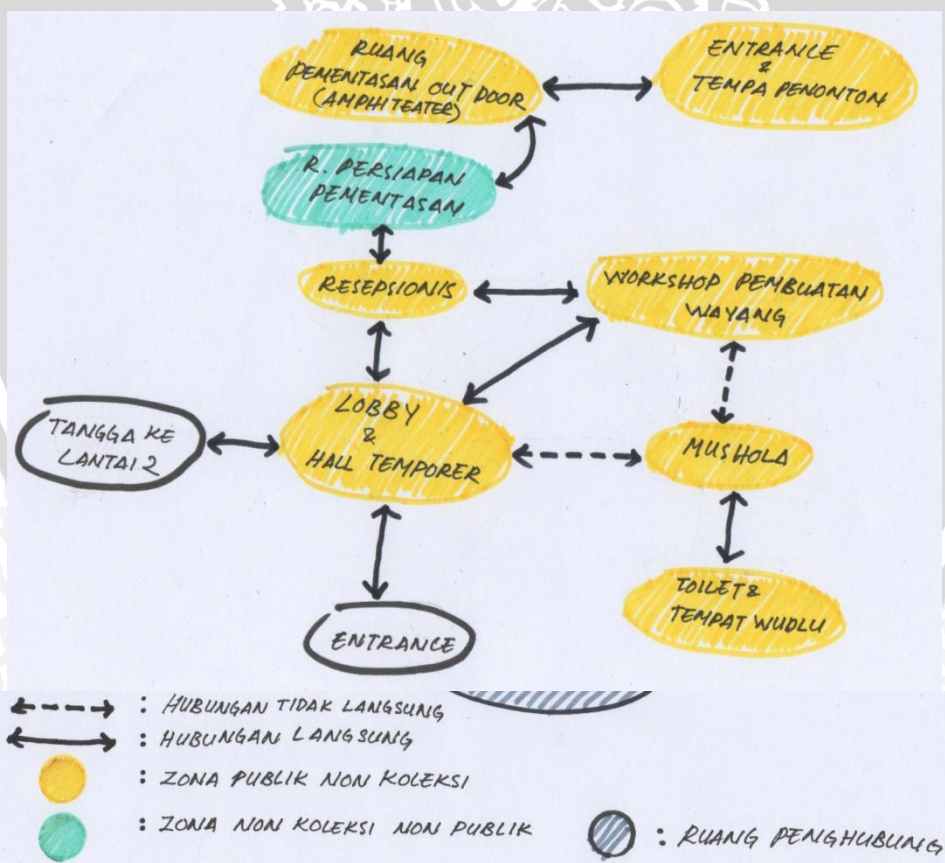 RUANG
PEMENTASAN OUT DOOR
(AMPHITEATER)
ENTRANCE
&
TEMPA PENONTON
R. PERSIAPAN
PEMENTASAN
RESEPSIONIS
WORKSHOP PEMBUATAN
WAYANG
LOBBY
&
HALL TEMPORER
TANGGA KE
LANTAI 2
MUSHOLA
TOILET &
TEMPAT WUDLU
ENTRANCE
: HUBUNGAN TIDAK LANGSUNG
: HUBUNGAN LANGSUNG
: ZONA PUBLIK NON KOLEKSI
: ZONA NON KOLEKSI NON PUBLIK
: RUANG PENGHUBUNG